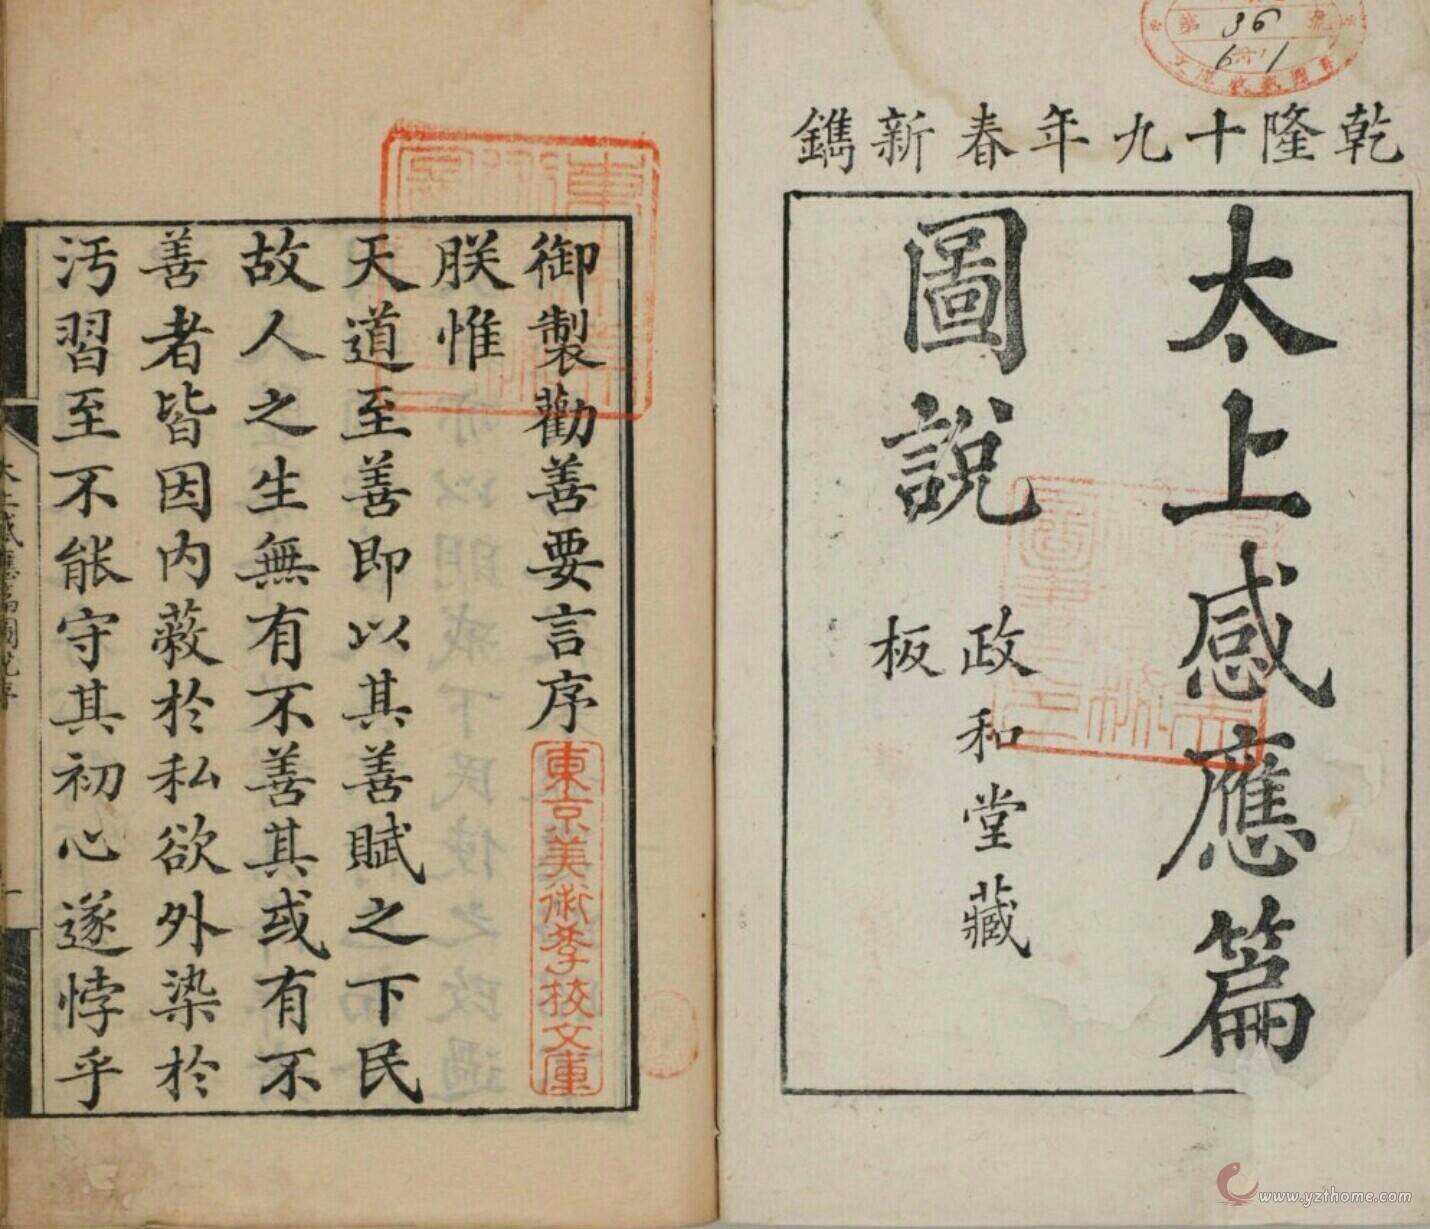 乾隆十九年春新鐫
太上感應篇
圖說
政和堂藏
板
第 36 號
6 冊ノ 1
御製勸善要言序
朕惟
天道至善即以其善賦之下民
故人之生無有不善其或有不
善者皆因内蔽於私欲外染於
汚習至不能守其初心遂悖乎
東京美術學校文庫
太上感應篇圖說序
一
www.yzthome.com